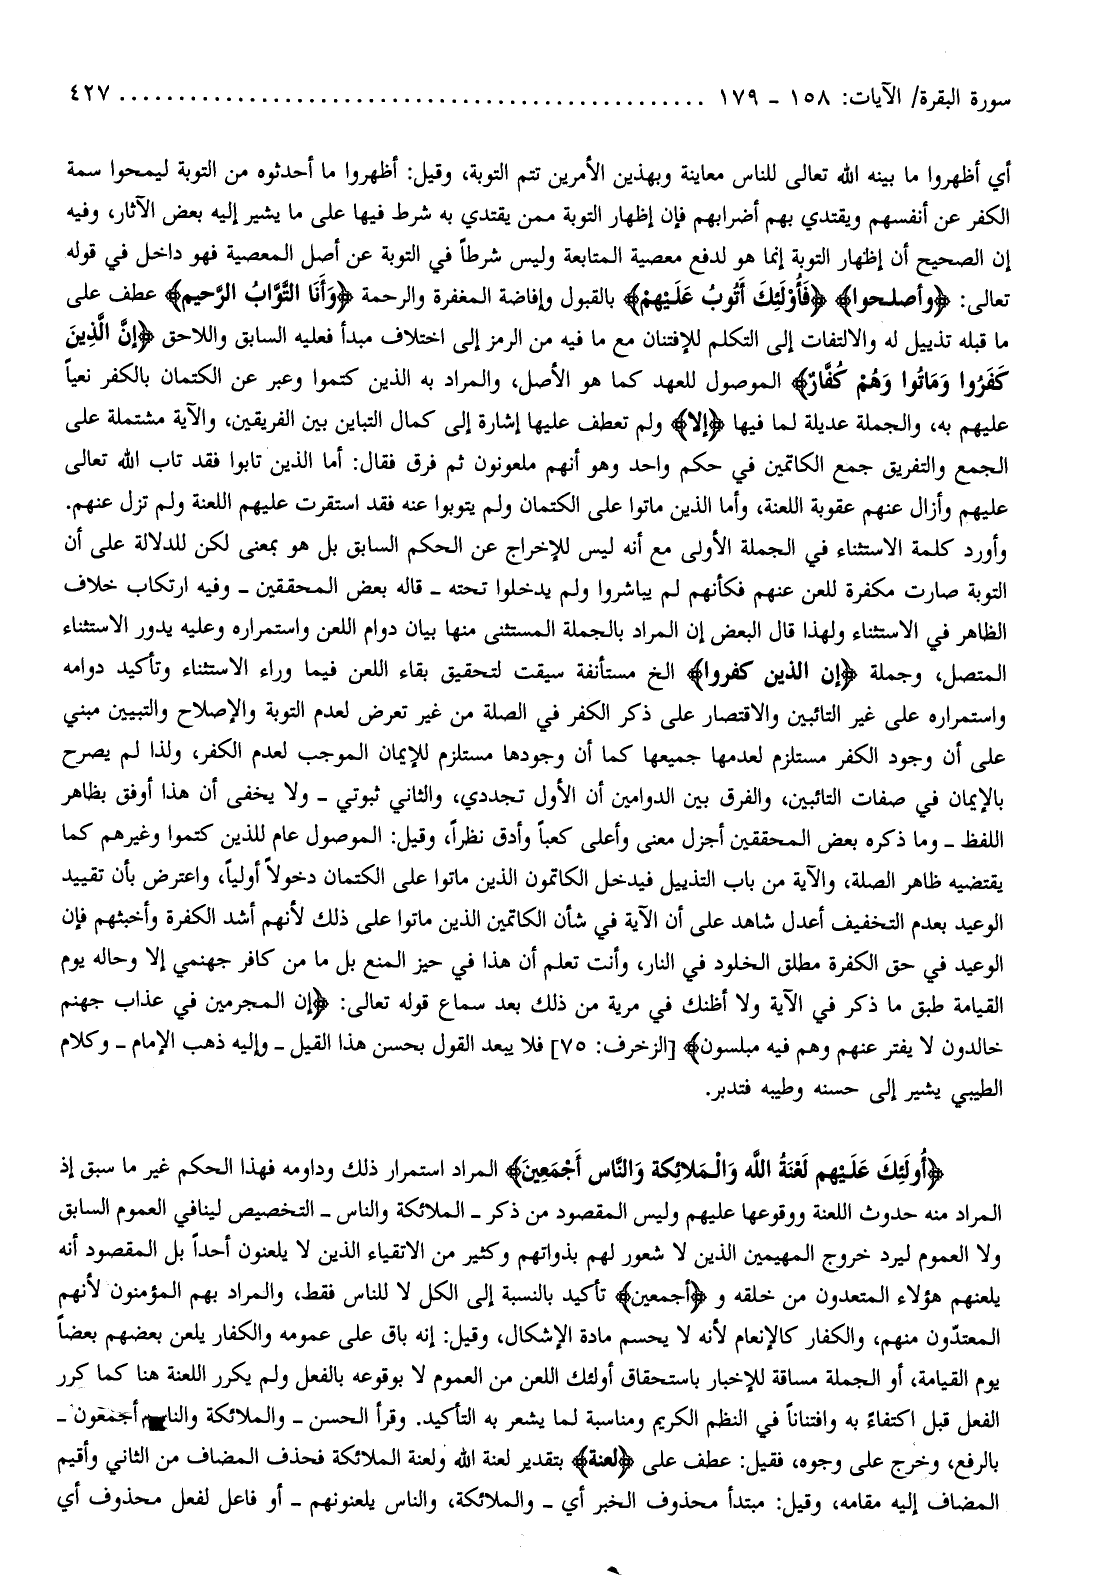 سورة البقرة/ الآيات: ١٥٨ - ١٧٩ .................................................. ٤٢٧
أي أظهروا ما بينه الله تعالى للناس معاينة وبهذين الأمرين تتم التوبة، وقيل: أظهروا ما أحدثوه من التوبة ليمحوا سمة
الكفر عن أنفسهم ويقتدي بهم أضرابهم فإن إظهار التوبة ممن يقتدي به شرط فيها على ما يشير إليه بعض الآثار، وفيه
إن الصحيح أن إظهار التوبة إنما هو لدفع معصية المتابعة وليس شرطاً في التوبة عن أصل المعصية فهو داخل في قوله
تعالى: ﴿وأصلحوا﴾ ﴿فَأُوْلَئِكَ أَتُوبُ عَلَيْهِمْ﴾ بالقبول وإفاضة المغفرة والرحمة ﴿وَأَنَا التَّوَّابُ الرَّحيم﴾ عطف على
ما قبله تذييل له والالتفات إلى التكلم للإفتنان مع ما فيه من الرمز إلى اختلاف مبدأ فعليه السابق واللاحق ﴿إنَّ الَّذِينَ
كَفَرُوا وَمَاتُوا وَهُمْ كُفَّارٌ﴾ الموصول للعهد كما هو الأصل، والمراد به الذين كتموا وعبر عن الكتمان بالكفر نعياً
عليهم به، والجملة عديلة لما فيها ﴿إلا﴾ ولم تعطف عليها إشارة إلى كمال التباين بين الفريقين، والآية مشتملة على
الجمع والتفريق جمع الكاتمين في حكم واحد وهو أنهم ملعونون ثم فرق فقال: أما الذين تابوا فقد تاب الله تعالى
عليهم وأزال عنهم عقوبة اللعنة، وأما الذين ماتوا على الكتمان ولم يتوبوا عنه فقد استقرت عليهم اللعنة ولم تزل عنهم.
وأورد كلمة الاستثناء في الجملة الأولى مع أنه ليس للإخراج عن الحكم السابق بل هو بمعنى لكن للدلالة على أن
التوبة صارت مكفرة للعن عنهم فكأنهم لم يباشروا ولم يدخلوا تحته ـ قاله بعض المحققين ـ وفيه ارتكاب خلاف
الظاهر في الاستثناء ولهذا قال البعض إن المراد بالجملة المستثنى منها بيان دوام اللعن واستمراره وعليه يدور الاستثناء
المتصل، وجملة ﴿إن الذين كفروا﴾ الخ مستأنفة سيقت لتحقيق بقاء اللعن فيما وراء الاستثناء وتأكيد دوامه
واستمراره على غير التائبين والاقتصار على ذكر الكفر في الصلة من غير تعرض لعدم التوبة والإصلاح والتبيين مبني
على أن وجود الكفر مستلزم لعدمها جميعها كما أن وجودها مستلزم للإيمان الموجب لعدم الكفر، ولذا لم يصرح
بالإيمان في صفات التائبين، والفرق بين الدوامين أن الأول تجددي، والثاني ثبوتي ـ ولا يخفى أن هذا أوفق بظاهر
اللفظ ـ وما ذكره بعض المحققين أجزل معنى وأعلى كعباً وأدق نظراً، وقيل: الموصول عام للذين كتموا وغيرهم كما
يقتضيه ظاهر الصلة، والآية من باب التذييل فيدخل الكاتمون الذين ماتوا على الكتمان دخولاً أولياً، واعترض بأن تقييد
الوعيد بعدم التخفيف أعدل شاهد على أن الآية في شأن الكاتمين الذين ماتوا على ذلك لأنهم أشد الكفرة وأخبثهم فإن
الوعيد في حق الكفرة مطلق الخلود في النار، وأنت تعلم أن هذا في حيز المنع بل ما من كافر جهنمي إلا وحاله يوم
القيامة طبق ما ذكر في الآية ولا أظنك في مرية من ذلك بعد سماع قوله تعالى: ﴿إن المجرمين في عذاب جهنم
خالدون لا يفتر عنهم وهم فيه مبلسون﴾ [الزخرف: ٧٥] فلا يبعد القول بحسن هذا القيل ـ وإليه ذهب الإمام ـ وكلام
الطيبي يشير إلى حسنه وطيبه فتدبر.
﴿أُولَئِكَ عَلَيْهِم لَعْنَةُ اللَّه وَالْمَلائِكة وَالنَّاس أَجْمَعِينَ﴾ المراد استمرار ذلك ودوامه فهذا الحكم غير ما سبق إذ
المراد منه حدوث اللعنة ووقوعها عليهم وليس المقصود من ذكر ـ الملائكة والناس ـ التخصيص لينافي العموم السابق
ولا العموم ليرد خروج المهيمين الذين لا شعور لهم بذواتهم وكثير من الاتقياء الذين لا يلعنون أحداً بل المقصود أنه
يلعنهم هؤلاء المتعدون من خلقه و ﴿أجمعين﴾ تأكيد بالنسبة إلى الكل لا للناس فقط، والمراد بهم المؤمنون لأنهم
المعتدّون منهم، والكفار كالإنعام لأنه لا يحسم مادة الإشكال، وقيل: إنه باق على عمومه والكفار يلعن بعضهم بعضاً
يوم القيامة، أو الجملة مساقة للإخبار باستحقاق أولئك اللعن من العموم لا بوقوعه بالفعل ولم يكرر اللعنة هنا كما كرر
الفعل قبل اكتفاءً به وافتناناً في النظم الكريم ومناسبة لما يشعر به التأكيد. وقرأ الحسن ـ والملائكة والناس أجمعون ـ
بالرفع، وخرج على وجوه، فقيل: عطف على ﴿لعنة﴾ بتقدير لعنة الله ولعنة الملائكة فحذف المضاف من الثاني وأقيم
المضاف إليه مقامه، وقيل: مبتدأ محذوف الخبر أي ـ والملائكة، والناس يلعنونهم ـ أو فاعل لفعل محذوف أي